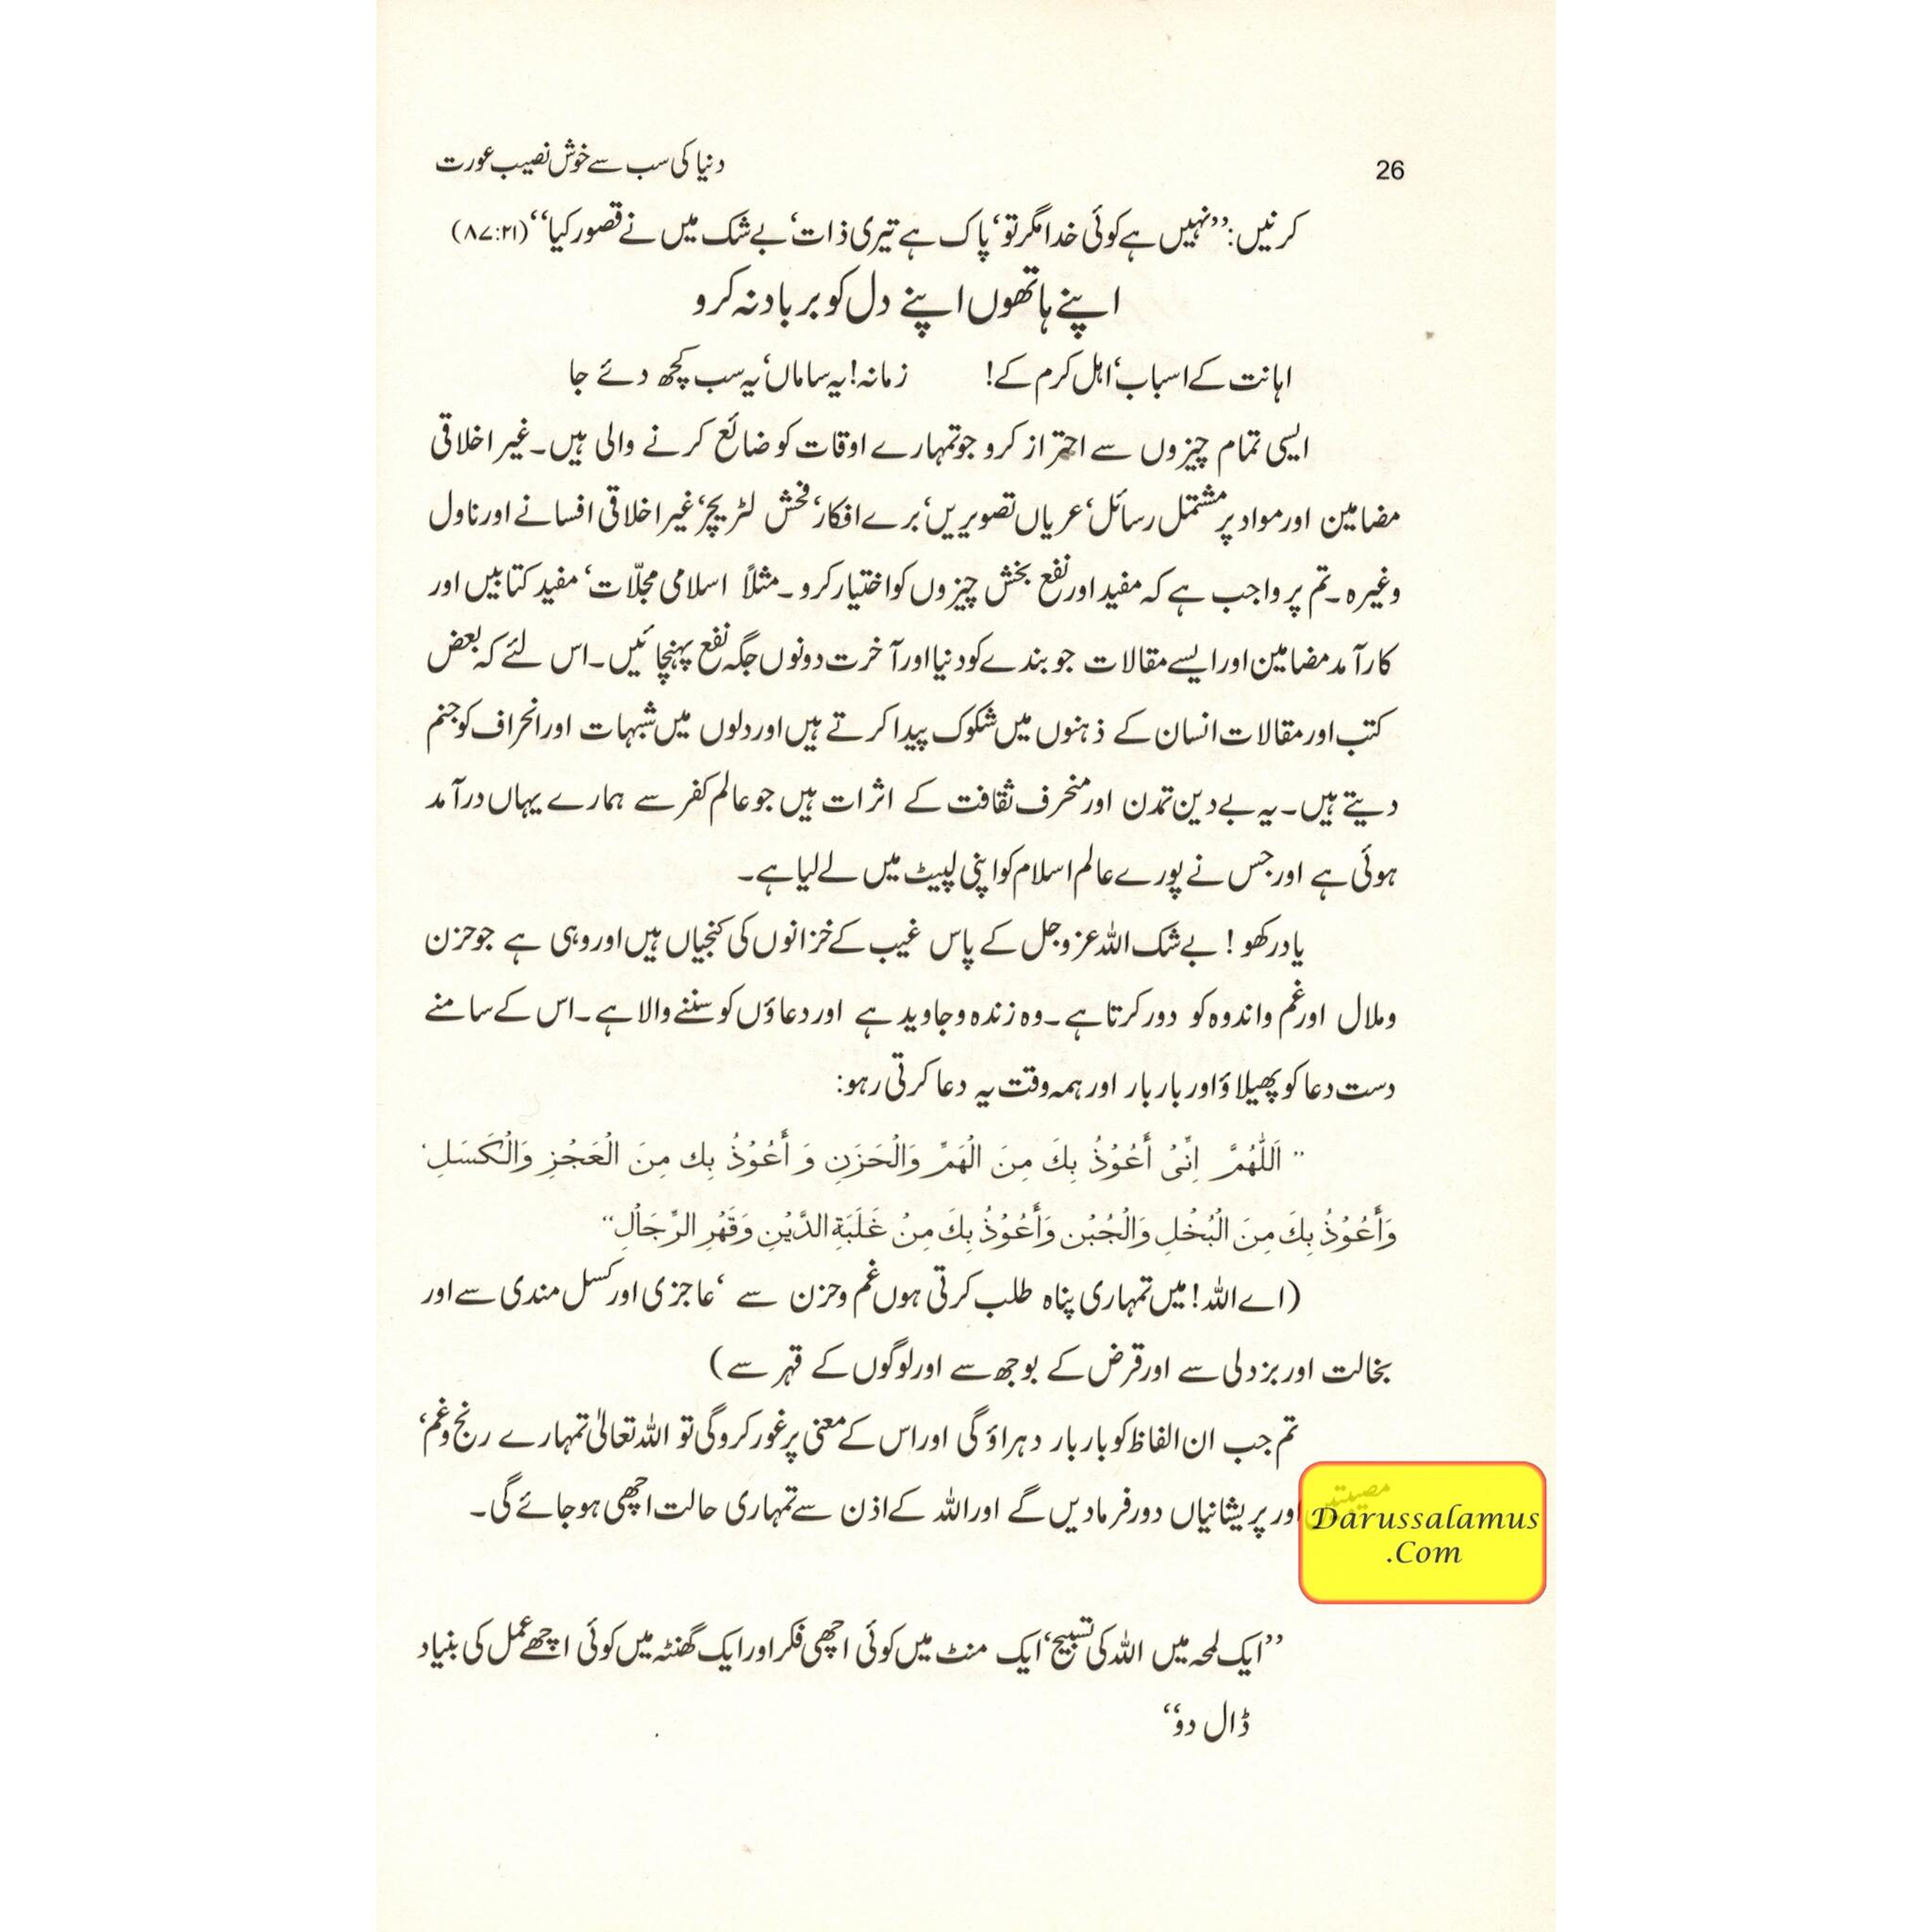 26
دنیا کی سب سے خوش نصیب عورت
کرنیں: ’’نہیں ہے کوئی خدا مگر تو‘ پاک ہے تیری ذات‘ بے شک میں نے قصور کیا‘‘ (۸۷:۲۱)
اپنے ہاتھوں اپنے دل کو برباد نہ کرو
اہانت کے اسباب‘ اہل کرم کے! زمانہ! یہ ساماں‘ یہ سب کچھ دئے جا
ایسی تمام چیزوں سے احتراز کرو جو تمہارے اوقات کو ضائع کرنے والی ہیں۔ غیر اخلاقی
مضامین اور مواد پر مشتمل رسائل‘ عریاں تصویریں‘ برے افکار‘ فحش لٹریچر‘ غیر اخلاقی افسانے اور ناول
وغیرہ۔ تم پر واجب ہے کہ مفید اور نفع بخش چیزوں کو اختیار کرو۔ مثلاً اسلامی مجلّات‘ مفید کتابیں اور
کارآمد مضامین اور ایسے مقالات جو بندے کو دنیا اور آخرت دونوں جگہ نفع پہنچائیں۔ اس لئے کہ بعض
کتب اور مقالات انسان کے ذہنوں میں شکوک پیدا کرتے ہیں اور دلوں میں شبہات اور انحراف کو جنم
دیتے ہیں۔ یہ بے دین تمدن اور منحرف ثقافت کے اثرات ہیں جو عالم کفر سے ہمارے یہاں درآمد
ہوئی ہے اور جس نے پورے عالم اسلام کو اپنی لپیٹ میں لے لیا ہے۔
یاد رکھو! بے شک اللہ عزوجل کے پاس غیب کے خزانوں کی کنجیاں ہیں اور وہی ہے جو حزن
وملال اور غم واندوہ کو دور کرتا ہے۔ وہ زندہ وجاوید ہے اور دعاؤں کو سننے والا ہے۔ اس کے سامنے
دست دعا کو پھیلاؤ اور بار بار اور ہمہ وقت یہ دعا کرتی رہو:
’’ اَللّٰهُمَّ اِنِّىْ أَعُوْذُ بِكَ مِنَ الْهَمِّ وَالْحَزَنِ وَ أَعُوْذُ بِك مِنَ الْعَجْزِ وَالْكَسَلِ‘
وَأَعُوْذُ بِكَ مِنَ الْبُخْلِ وَالْجُبْنِ وَأَعُوْذُ بِكَ مِنْ غَلَبَةِ الدَّيْنِ وَقَهْرِ الرِّجَالِ‘‘
(اے اللہ! میں تمہاری پناہ طلب کرتی ہوں غم وحزن سے ‘عاجزی اور کسل مندی سے اور
بخالت اور بزدلی سے اور قرض کے بوجھ سے اور لوگوں کے قہر سے)
تم جب ان الفاظ کو بار بار دہراؤ گی اور اس کے معنی پر غور کرو گی تو اللہ تعالیٰ تمہارے رنج وغم‘
مصیبتیں اور پریشانیاں دور فرما دیں گے اور اللہ کے اذن سے تمہاری حالت اچھی ہو جائے گی۔
Darussalamus
.Com
’’ایک لمحہ میں اللہ کی تسبیح‘ ایک منٹ میں کوئی اچھی فکر اور ایک گھنٹہ میں کوئی اچھے عمل کی بنیاد
ڈال دو‘‘